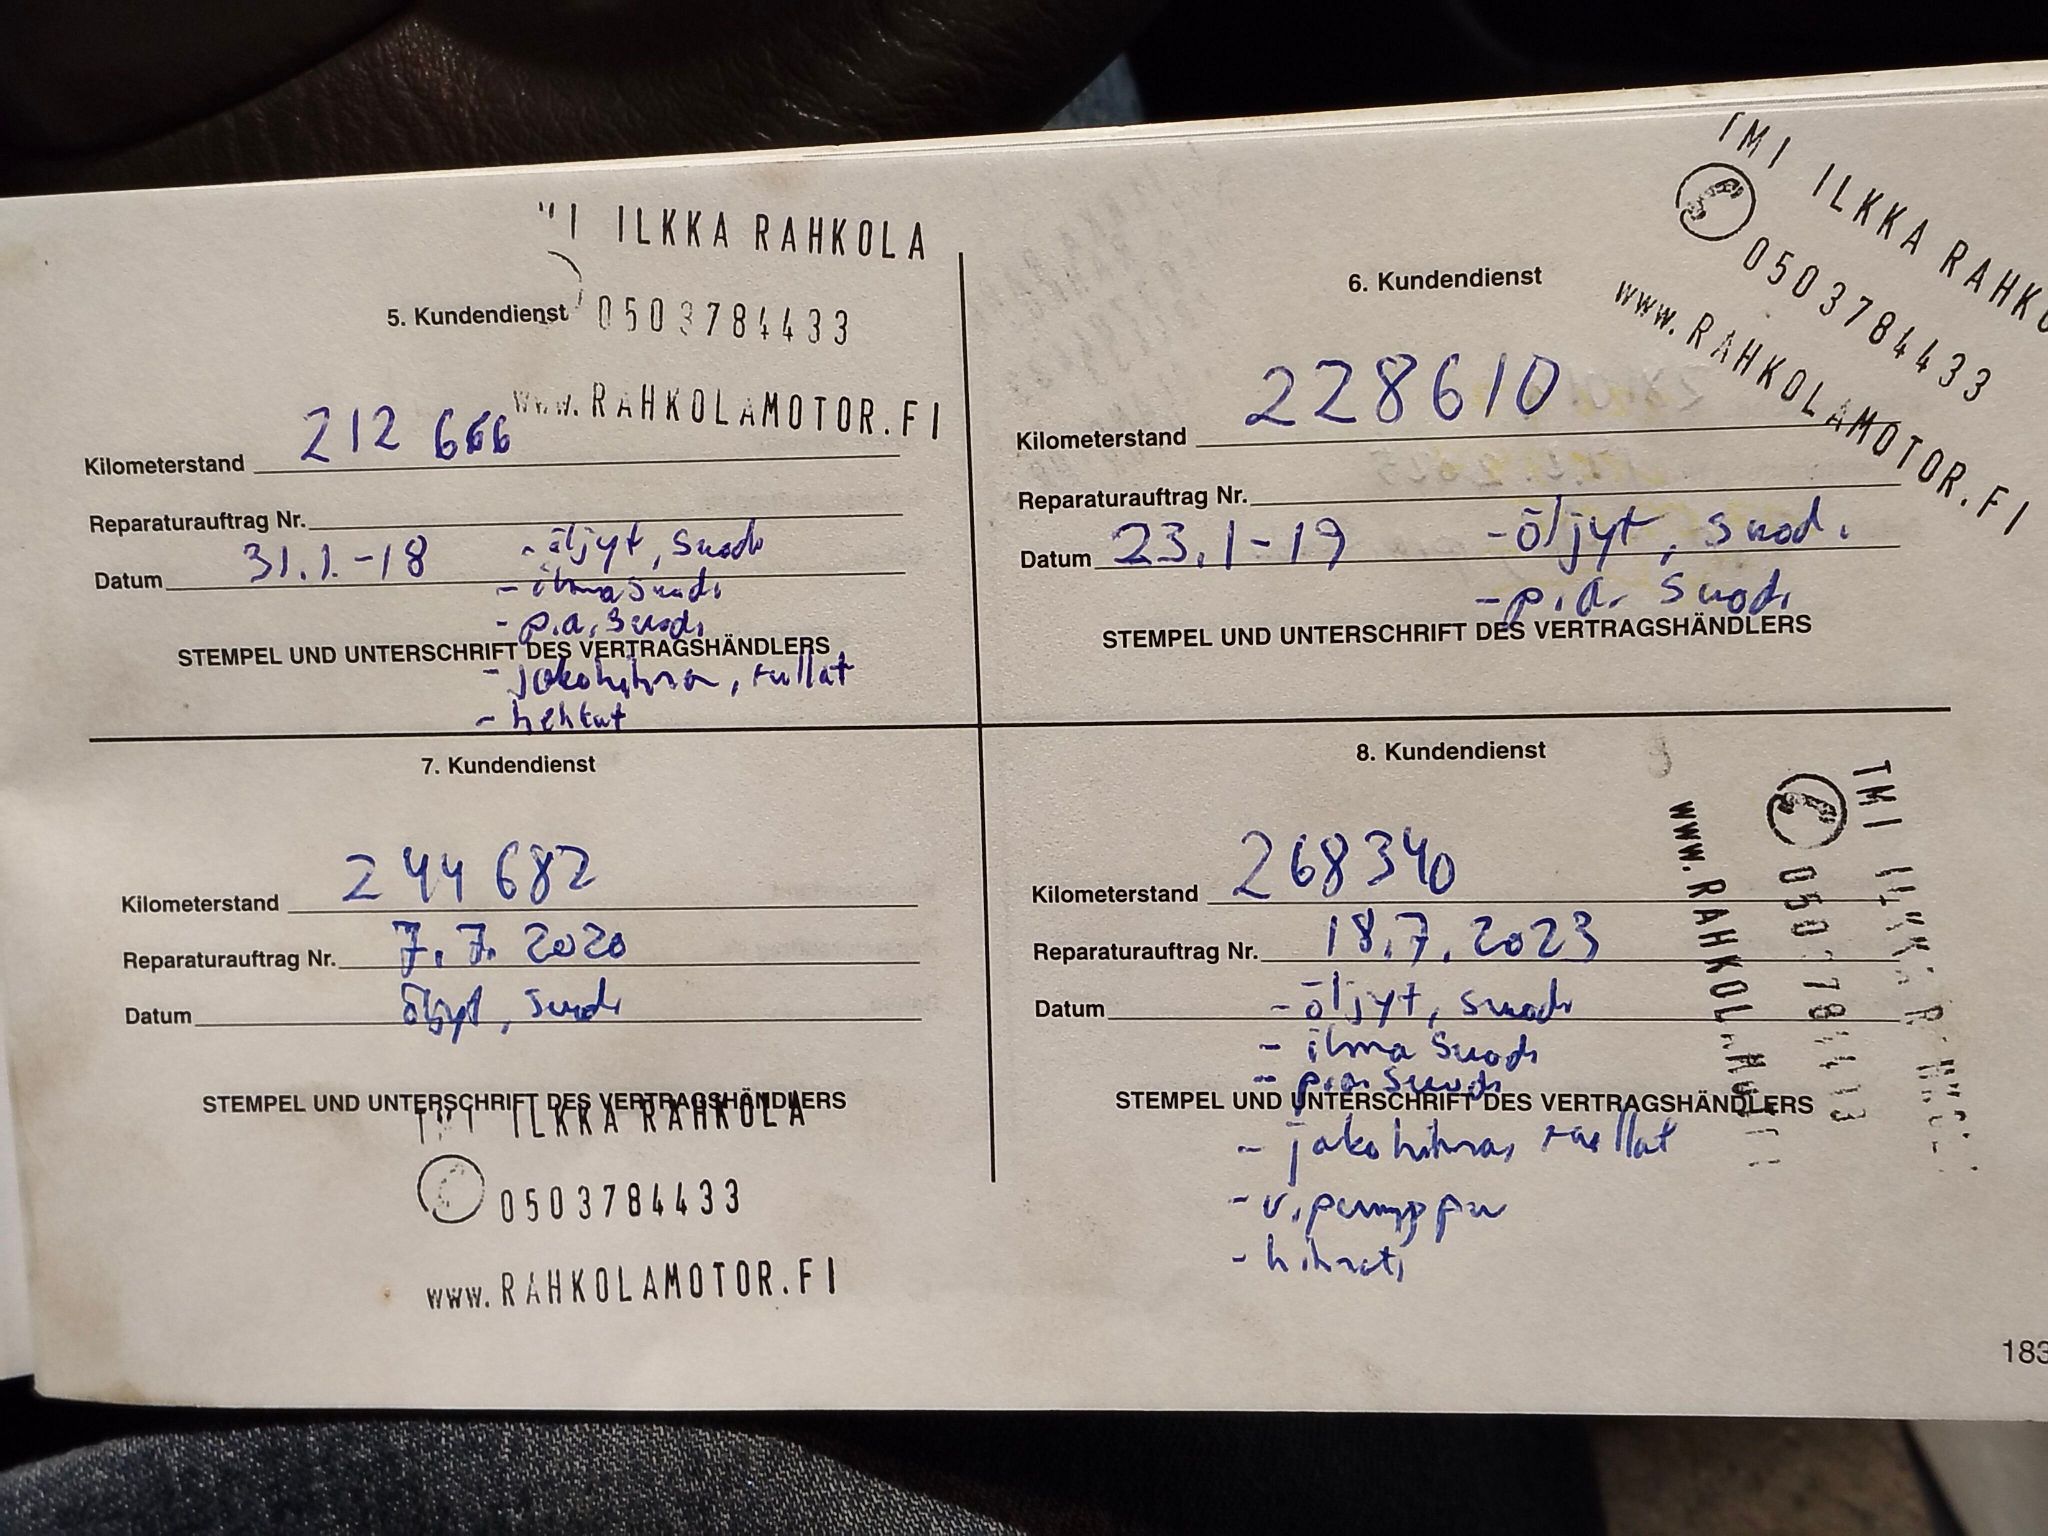 ILKKA RAHKOLA
5. Kundendienst
0503784433
www.RAHKOLAMOTOR.FI
Kilometerstand 212 666
Reparaturauftrag Nr.
Datum 31.1.-18
- öljyt, suod.
- ilmasuod.
- p.a. suod.
STEMPEL UND UNTERSCHRIFT DES VERTRAGSHÄNDLERS
- jakohihna, rullat
- hehkut
TMI ILKKA RAHKO
0503784433
www.RAHKOLAMOTOR.FI
6. Kundendienst
Kilometerstand 228610
Reparaturauftrag Nr.
Datum 23.1-19
- öljyt, suod.
- p.a. suod.
STEMPEL UND UNTERSCHRIFT DES VERTRAGSHÄNDLERS
7. Kundendienst
Kilometerstand 244 682
Reparaturauftrag Nr. 7.7.2020
Datum öljyt, suod.
STEMPEL UND UNTERSCHRIFT DES VERTRAGSHÄNDLERS
TMI ILKKA RAHKOLA
0503784433
www.RAHKOLAMOTOR.FI
8. Kundendienst
Kilometerstand 268340
Reparaturauftrag Nr. 18.7.2023
Datum - öljyt, suod.
- ilma suod.
- p.a. suod.
STEMPEL UND UNTERSCHRIFT DES VERTRAGSHÄNDLERS
- jakohihna, rullat
- v.pumppu
- hihnat
TMI
www.RAHKOL
183